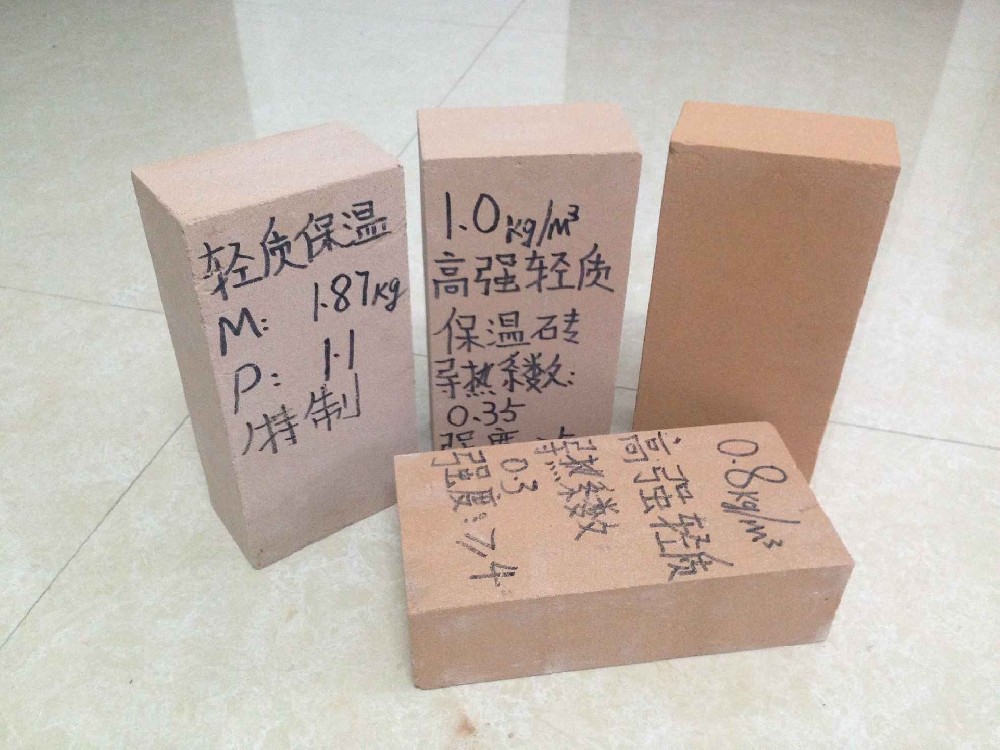 轻质保温
M: 1.87kg
P: 1.1
特制
1.0kg/m³
高强轻质
保温砖
导热系数:
0.35
强度
0.8kg/m³
高强轻质
导热系数
0.3
强度:7.4